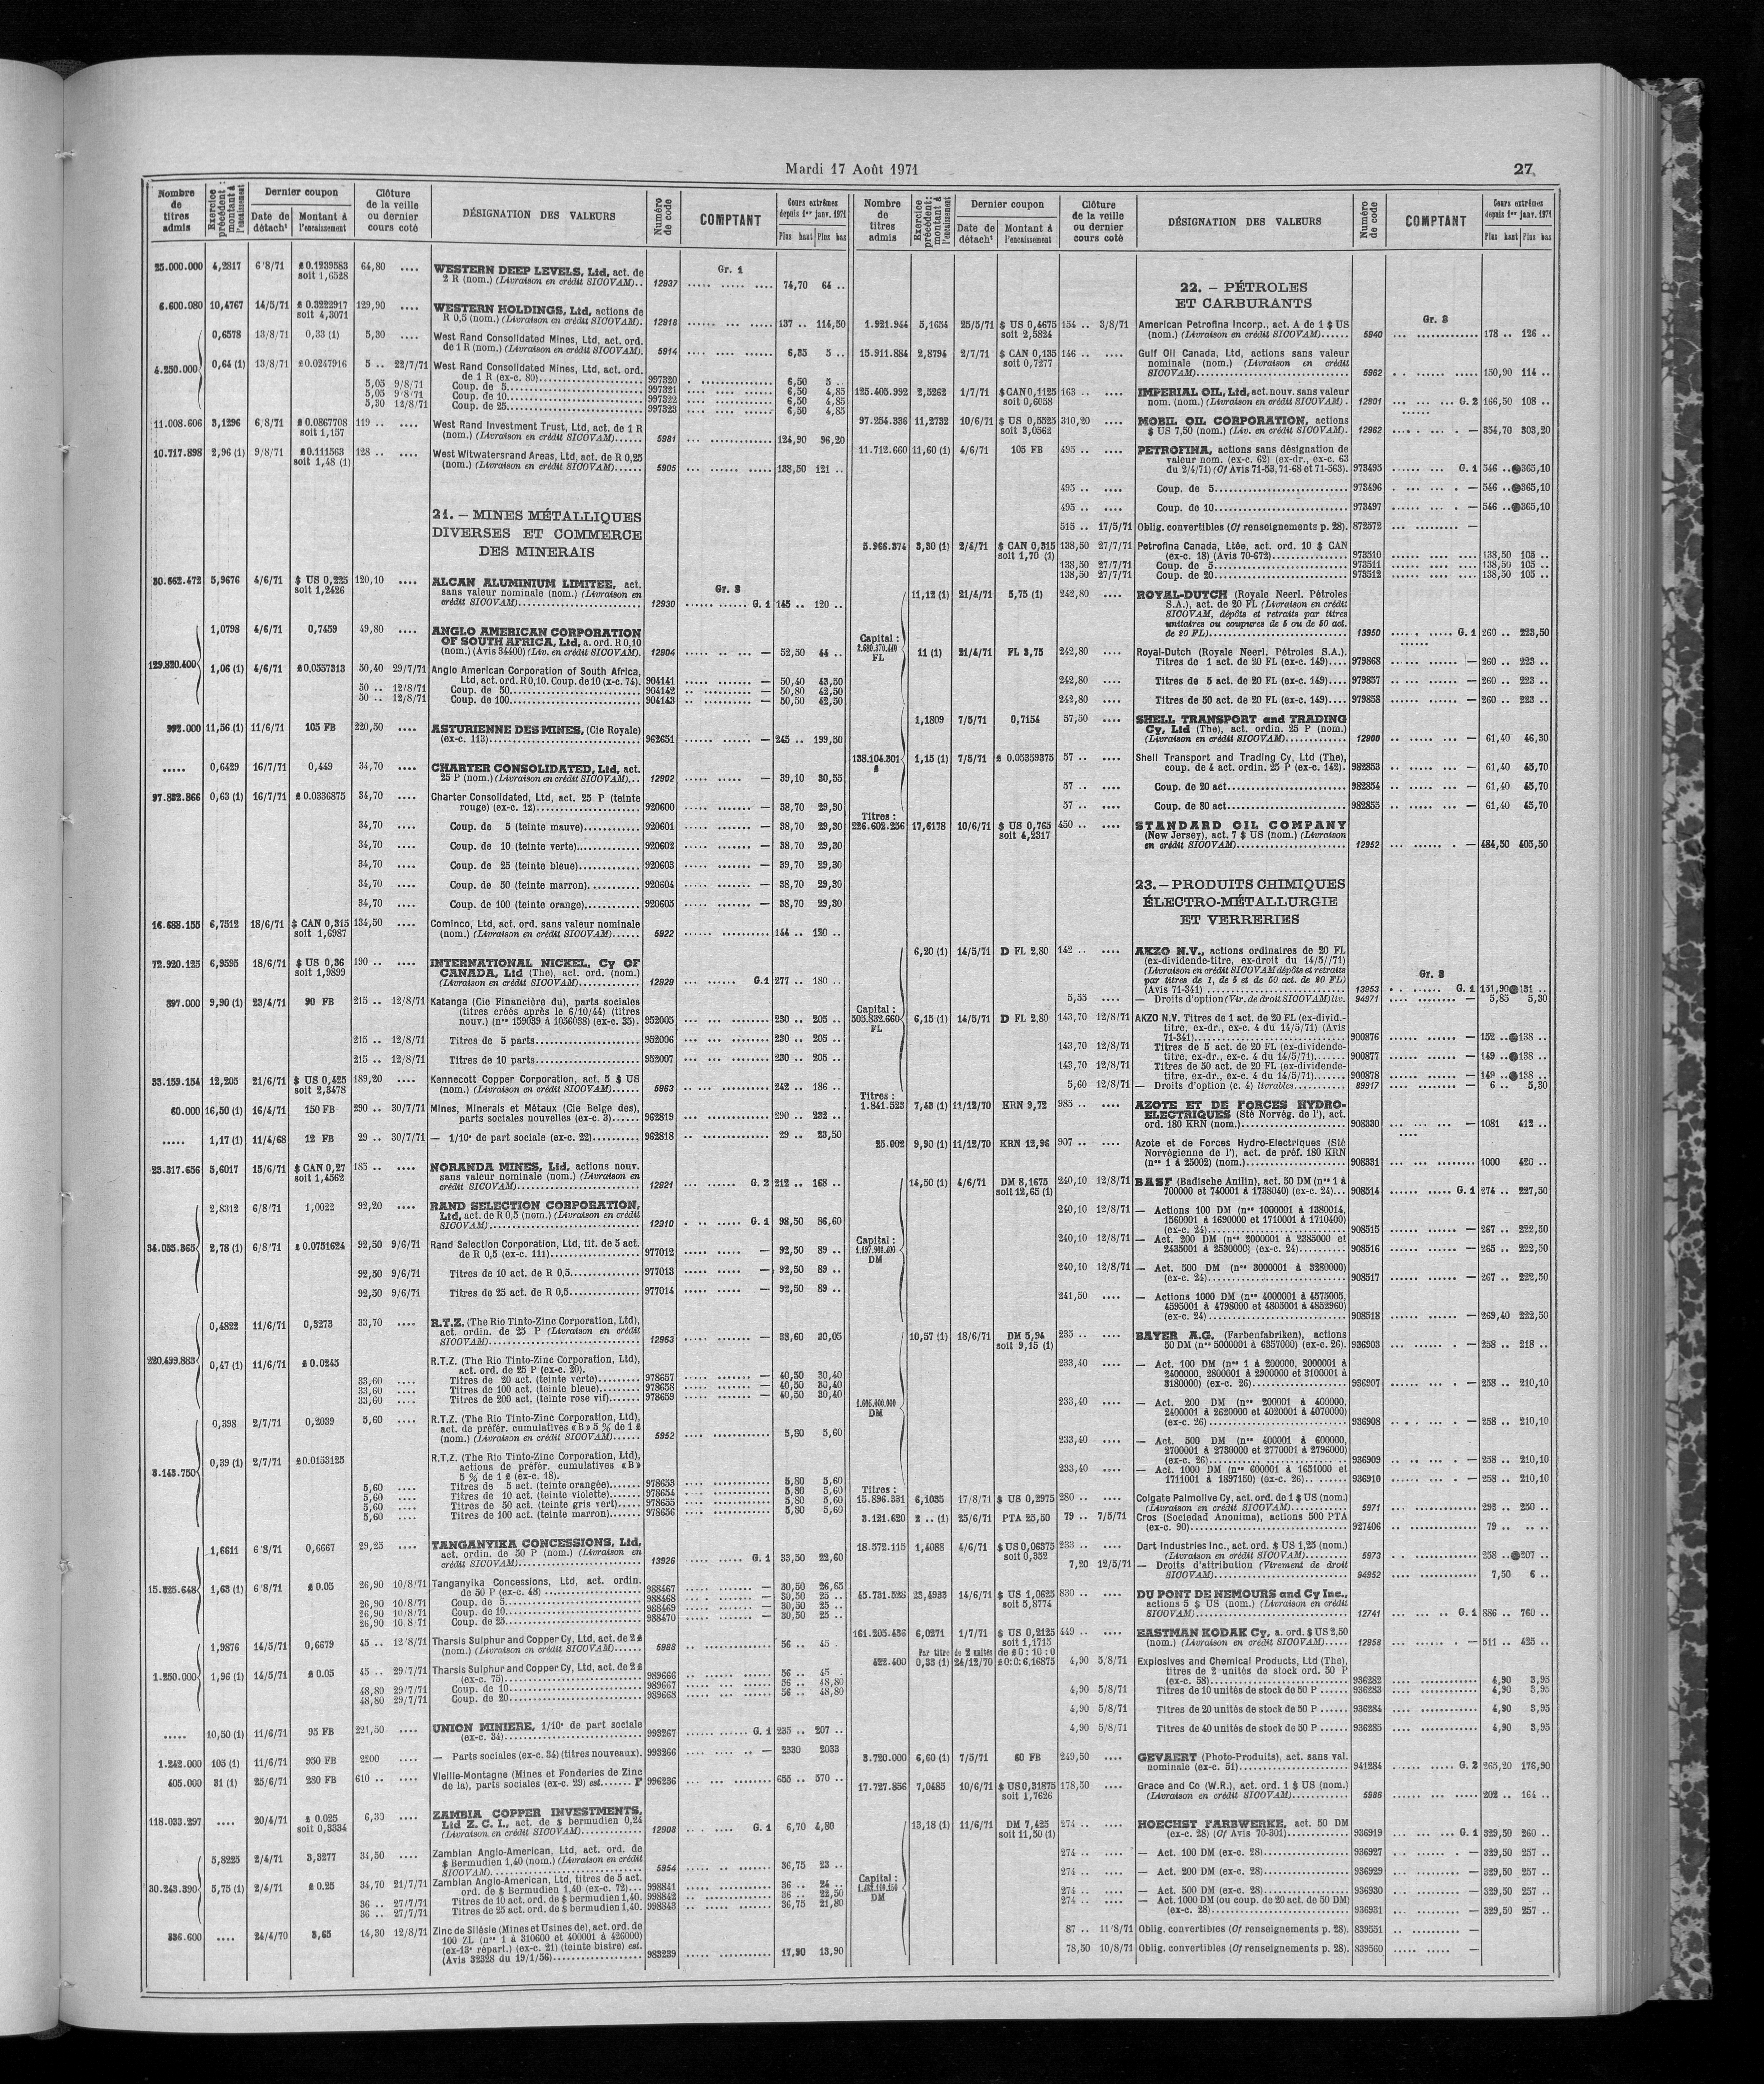 Mardi 17 Août 1971
27
Nombre de titres admis
Exercice précédent : montant à l'encaissement
Dernier coupon
Date de détach^t
Montant à l'encaissement
Clôture de la veille ou dernier cours coté
DÉSIGNATION DES VALEURS
Numéro de code
COMPTANT
Cours extrêmes depuis 1er janv. 1971
Plus haut Plus bas
Gr. 1
25.000.000 4,2817 6/8/71 £ 0.1239583 64,80 .... WESTERN DEEP LEVELS, Ltd, act. de
soit 1,6528 2 R (nom.) (Livraison en crédit SICOVAM).. 12937 74,70 64 ..
6.600.080 10,4767 14/5/71 £ 0.3222917 129,90 .... WESTERN HOLDINGS, Ltd, actions de
soit 4,3071 R 0,5 (nom.) (Livraison en crédit SICOVAM). 12918 137 .. 114,50
0,6578 13/8/71 0,33 (1) 5,30 .... West Rand Consolidated Mines, Ltd, act. ord.
de 1 R (nom.) (Livraison en crédit SICOVAM). 5914 6,35 5 ..
4.250.000 0,64 (1) 13/8/71 £0.0247916 5 .. 22/7/71 West Rand Consolidated Mines, Ltd, act. ord.
de 1 R (ex-c. 80) 997320 6,50 5 ..
5,05 9/8/71 Coup. de 5 997321 6,50 4,85
5,05 9/8/71 Coup. de 10 997322 6,50 4,85
5,30 12/8/71 Coup. de 25 997323 6,50 4,85
11.008.606 3,1296 6/8/71 £ 0.0867708 119 .. .... West Rand Investment Trust, Ltd, act. de 1 R
soit 1,157 (nom.) (Livraison en crédit SICOVAM)...... 5981 124,90 96,20
10.717.898 2,96 (1) 9/8/71 £0.111563 128 .. .... West Witwatersrand Areas, Ltd, act. de R 0,25
soit 1,48 (1) (nom.) (Livraison en crédit SICOVAM)...... 5905 138,50 121 ..
21. — MINES MÉTALLIQUES
DIVERSES ET COMMERCE
DES MINERAIS
Gr. 3
30.662.472 5,9676 4/6/71 $ US 0,225 120,10 .... ALCAN ALUMINIUM LIMITEE, act.
soit 1,2426 sans valeur nominale (nom.) (Livraison en
crédit SICOVAM) 12930 G. 1 145 .. 120 ..
1,0798 4/6/71 0,7459 49,80 .... ANGLO AMERICAN CORPORATION
OF SOUTH AFRICA, Ltd, a. ord. R 0,10
(nom.) (Avis 34400) (Liv. en crédit SICOVAM). 12904 — 52,50 44 ..
129.820.400 1,06 (1) 4/6/71 £0.0557313 50,40 29/7/71 Anglo American Corporation of South Africa,
Ltd, act. ord. R 0,10. Coup. de 10 (x-c. 74). 904141 — 50,40 43,50
50 .. 12/8/71 Coup. de 50 904142 — 50,80 42,50
50 .. 12/8/71 Coup. de 100 904143 — 50,50 42,50
992.000 11,56 (1) 11/6/71 105 FB 220,50 .... ASTURIENNE DES MINES, (Cie Royale)
(ex-c. 113) 962651 — 245 .. 199,50
..... 0,6429 16/7/71 0,449 34,70 .... CHARTER CONSOLIDATED, Ltd, act.
25 P (nom.) (Livraison en crédit SICOVAM)... 12902 — 39,10 30,55
97.832.866 0,63 (1) 16/7/71 £0.0336875 34,70 .... Charter Consolidated, Ltd, act. 25 P (teinte
rouge) (ex-c. 12) 920600 — 38,70 29,30
34,70 .... Coup. de 5 (teinte mauve) 920601 — 38,70 29,30
34,70 .... Coup. de 10 (teinte verte) 920602 — 38,70 29,30
34,70 .... Coup. de 25 (teinte bleue) 920603 — 39,70 29,30
34,70 .... Coup. de 50 (teinte marron) 920604 — 38,70 29,30
34,70 .... Coup. de 100 (teinte orange) 920605 — 38,70 29,30
16.688.155 6,7512 18/6/71 $ CAN 0,315 134,50 .... Cominco, Ltd, act. ord. sans valeur nominale
soit 1,6987 (nom.) (Livraison en crédit SICOVAM)...... 5922 144 .. 120 ..
72.920.125 6,9595 18/6/71 $ US 0,36 190 .. .... INTERNATIONAL NICKEL, Cy OF
soit 1,9899 CANADA, Ltd (The), act. ord. (nom.)
(Livraison en crédit SICOVAM) 12929 G.1 277 .. 180 ..
897.000 9,90 (1) 23/4/71 90 FB 215 .. 12/8/71 Katanga (Cie Financière du), parts sociales
(titres créés après le 6/10/44) (titres
nouv.) (nos 159039 à 1056038) (ex-c. 35). 952005 — 230 .. 205 ..
215 .. 12/8/71 Titres de 5 parts 952006 — 230 .. 205 ..
215 .. 12/8/71 Titres de 10 parts 952007 — 230 .. 205 ..
33.159.154 12,205 21/6/71 $ US 0,425 189,20 .... Kennecott Copper Corporation, act. 5 $ US
soit 2,3478 (nom.) (Livraison en crédit SICOVAM)...... 5963 — 242 .. 186 ..
60.000 16,50 (1) 16/4/71 150 FB 290 .. 30/7/71 Mines, Minerais et Métaux (Cie Belge des),
parts sociales nouvelles (ex-c. 3) 962819 — 290 .. 232 ..
..... 1,17 (1) 11/4/68 12 FB 29 .. 30/7/71 — 1/10e de part sociale (ex-c. 22) 962818 29 .. 23,50
23.317.656 5,6017 15/6/71 $ CAN 0,27 185 .. .... NORANDA MINES, Ltd, actions nouv.
soit 1,4562 sans valeur nominale (nom.) (Livraison en
crédit SICOVAM) 12921 G. 2 212 .. 168 ..
2,8312 6/8/71 1,0022 92,20 .... RAND SELECTION CORPORATION,
Ltd, act. de R 0,5 (nom.) (Livraison en crédit
SICOVAM) 12910 G. 1 98,50 86,60
34.035.365 2,78 (1) 6/8/71 £ 0.0751624 92,50 9/6/71 Rand Selection Corporation, Ltd, tit. de 5 act.
de R 0,5 (ex-c. 111) 977012 — 92,50 89 ..
92,50 9/6/71 Titres de 10 act. de R 0,5 977013 — 92,50 89 ..
92,50 9/6/71 Titres de 25 act. de R 0,5 977014 — 92,50 89 ..
0,4822 11/6/71 0,3273 33,70 .... R.T.Z. (The Rio Tinto-Zinc Corporation, Ltd),
act. ordin. de 25 P (Livraison en crédit
SICOVAM) 12963 — 38,60 30,05
220.499.883 0,47 (1) 11/6/71 £ 0.0245 R.T.Z. (The Rio Tinto-Zinc Corporation, Ltd),
act. ord. de 25 P (ex-c. 20).
33,60 .... Titres de 20 act. (teinte verte) 978657 — 40,50 30,40
33,60 .... Titres de 100 act. (teinte bleue) 978658 — 40,50 30,40
33,60 .... Titres de 200 act. (teinte rose vif) 978659 — 40,50 30,40
0,398 2/7/71 0,2039 5,60 .... R.T.Z. (The Rio Tinto-Zinc Corporation, Ltd),
act. de préfér. cumulatives «B» 5 % de 1 £
(nom.) (Livraison en crédit SICOVAM)...... 5952 5,80 5,60
3.143.750 0,39 (1) 2/7/71 £0.0153125 R.T.Z. (The Rio Tinto-Zinc Corporation, Ltd),
actions de préfér. cumulatives «B»
5 % de 1 £ (ex-c. 18).
5,60 .... Titres de 5 act. (teinte orangée) 978653 5,80 5,60
5,60 .... Titres de 10 act. (teinte violette) 978654 5,80 5,60
5,60 .... Titres de 50 act. (teinte gris vert) 978655 5,80 5,60
5,60 .... Titres de 100 act. (teinte marron) 978656 5,80 5,60
1,6611 6/8/71 0,6667 29,25 .... TANGANYIKA CONCESSIONS, Ltd,
act. ordin. de 50 P (nom.) (Livraison en
crédit SICOVAM) 13926 G. 1 33,50 22,60
15.325.648 1,63 (1) 6/8/71 £ 0.05 26,90 10/8/71 Tanganyika Concessions, Ltd, act. ordin.
de 50 P (ex-c. 48) 988467 — 30,50 26,65
26,90 10/8/71 Coup. de 5 988468 — 30,50 25 ..
26,90 10/8/71 Coup. de 10 988469 — 30,50 25 ..
26,90 10/8/71 Coup. de 25 988470 — 30,50 25 ..
1,9876 14/5/71 0,6679 45 .. 12/8/71 Tharsis Sulphur and Copper Cy, Ltd, act. de 2 £
(nom.) (Livraison en crédit SICOVAM)...... 5988 56 .. 45 .
1.250.000 1,96 (1) 14/5/71 £ 0.05 45 .. 29/7/71 Tharsis Sulphur and Copper Cy, Ltd, act. de 2 £
(ex-c. 75) 989666 56 .. 45 .
48,80 29/7/71 Coup. de 10 989667 56 .. 48,80
48,80 29/7/71 Coup. de 20 989668 56 .. 48,80
..... 10,50 (1) 11/6/71 95 FB 221,50 .... UNION MINIERE, 1/10e de part sociale
(ex-c. 34) 993267 G. 1 235 .. 207 ..
1.242.000 105 (1) 11/6/71 950 FB 2200 .... — Parts sociales (ex-c. 34) (titres nouveaux). 993266 — 2330 2033
405.000 31 (1) 25/6/71 280 FB 610 .. .... Vieille-Montagne (Mines et Fonderies de Zinc
de la), parts sociales (ex-c. 29) est....... F 996236 655 .. 570 ..
118.033.297 .... 20/4/71 £ 0.025 6,30 .... ZAMBIA COPPER INVESTMENTS,
soit 0,3334 Ltd Z. C. I., act. de $ bermudien 0,24
(Livraison en crédit SICOVAM) 12908 G. 1 6,70 4,80
5,8225 2/4/71 3,3277 34,50 .... Zambian Anglo-American, Ltd, act. ord. de
$ Bermudien 1,40 (nom.) (Livraison en crédit
SICOVAM) 5954 36,75 23 ..
30.243.390 5,75 (1) 2/4/71 £ 0.25 34,70 21/7/71 Zambian Anglo-American, Ltd, titres de 5 act.
ord. de $ Bermudien 1,40 (ex-c. 72)... 998841 36 .. 24 ..
36 .. 27/7/71 Titres de 10 act. ord. de $ bermudien 1,40. 998842 36 .. 22,50
36 .. 27/7/71 Titres de 25 act. ord. de $ bermudien 1,40. 998843 36,75 21,80
836.600 .... 24/4/70 3,65 14,30 12/8/71 Zinc de Silésie (Mines et Usines de), act. ord. de
100 ZL (nos 1 à 310600 et 400001 à 426000)
(ex-13e répart.) (ex-c. 21) (teinte bistre) est.
(Avis 32328 du 19/1/56) 983239 17,90 13,90
Nombre de titres admis
Exercice précédent : montant à l'encaissement
Dernier coupon
Date de détach^t
Montant à l'encaissement
Clôture de la veille ou dernier cours coté
DÉSIGNATION DES VALEURS
Numéro de code
COMPTANT
Cours extrêmes depuis 1er janv. 1971
Plus haut Plus bas
22. — PÉTROLES
ET CARBURANTS
Gr. 3
1.921.944 5,1654 25/5/71 $ US 0,4675 154 .. 3/8/71 American Petrofina Incorp., act. A de 1 $ US
soit 2,5824 (nom.) (Livraison en crédit SICOVAM)...... 5940 178 .. 126 ..
15.911.884 2,8794 2/7/71 $ CAN 0,135 146 .. .... Gulf Oil Canada, Ltd, actions sans valeur
soit 0,7277 nominale (nom.) (Livraison en crédit
SICOVAM) 5962 150,90 114 ..
125.405.992 2,5262 1/7/71 $ CAN 0,1125 163 .. .... IMPERIAL OIL, Ltd, act. nouv. sans valeur
soit 0,6058 nom. (nom.) (Livraison en crédit SICOVAM). 12901 G. 2 166,50 108 ..
97.254.336 11,2732 10/6/71 $ US 0,5525 310,20 .... MOBIL OIL CORPORATION, actions
soit 3,0562 $ US 7,50 (nom.) (Liv. en crédit SICOVAM). 12962 — 354,70 303,20
11.712.660 11,60 (1) 4/6/71 105 FB 495 .. .... PETROFINA, actions sans désignation de
valeur nom. (ex-c. 62) (ex-dr., ex-c. 63
du 2/4/71) (Cf Avis 71-53, 71-68 et 71-563). 973495 G. 1 546 .. 365,10
495 .. .... Coup. de 5 973496 — 546 .. 365,10
495 .. .... Coup. de 10 973497 — 546 .. 365,10
515 .. 17/5/71 Oblig. convertibles (Cf renseignements p. 28). 872572 —
5.966.374 3,30 (1) 2/4/71 $ CAN 0,315 138,50 27/7/71 Petrofina Canada, Ltée, act. ord. 10 $ CAN
soit 1,70 (1) (ex-c. 18) (Avis 70-672) 973510 138,50 105 ..
138,50 27/7/71 Coup. de 5 973511 138,50 105 ..
138,50 27/7/71 Coup. de 20 973512 138,50 105 ..
11,12 (1) 21/4/71 5,75 (1) 242,80 .... ROYAL-DUTCH (Royale Neerl. Pétroles
S.A.), act. de 20 FL (Livraison en crédit
SICOVAM, dépôts et retraits par titres
unitaires ou coupures de 5 ou de 50 act.
de 20 FL) 13950 G. 1 260 .. 223,50
Capital :
FL
11 (1) 21/4/71 FL 3,75 242,80 .... Royal-Dutch (Royale Neerl. Pétroles S.A.).
Titres de 1 act. de 20 FL (ex-c. 149).... 979868 — 260 .. 223 ..
242,80 .... Titres de 5 act. de 20 FL (ex-c. 149).... 979857 — 260 .. 223 ..
242,80 .... Titres de 50 act. de 20 FL (ex-c. 149).... 979858 — 260 .. 223 ..
1,1809 7/5/71 0,7154 57,50 .... SHELL TRANSPORT and TRADING
Cy, Ltd (The), act. ordin. 25 P (nom.)
(Livraison en crédit SICOVAM) 12900 — 61,40 46,30
138.104.301 £ 1,15 (1) 7/5/71 £ 0.05359375 57 .. .... Shell Transport and Trading Cy, Ltd (The),
coup. de 4 act. ordin. 25 P (ex-c. 142). 982853 — 61,40 45,70
57 .. .... Coup. de 20 act 982854 — 61,40 45,70
57 .. .... Coup. de 80 act 982855 — 61,40 45,70
Titres :
226.602.256 17,6178 10/6/71 $ US 0,765 450 .. .... STANDARD OIL COMPANY
soit 4,2317 (New Jersey), act. 7 $ US (nom.) (Livraison
en crédit SICOVAM) 12952 — 484,50 405,50
23. — PRODUITS CHIMIQUES
ÉLECTRO-MÉTALLURGIE
ET VERRERIES
Gr. 3
6,20 (1) 14/5/71 D FL 2,80 142 .. .... AKZO N.V., actions ordinaires de 20 FL
(ex-dividende-titre, ex-droit du 14/5/71)
(Livraison en crédit SICOVAM dépôts et retraits
par titres de 1, de 5 et de 50 act. de 20 FL)
(Avis 71-341) 13953 G. 1 151,90 131 ..
5,55 .... — Droits d'option (Vir. de droit SICOVAM) liv. 94971 5,85 5,30
Capital :
505.832.660 FL 6,15 (1) 14/5/71 D FL 2,80 143,70 12/8/71 AKZO N.V. Titres de 1 act. de 20 FL (ex-divid.-
titre, ex-dr., ex-c. 4 du 14/5/71) (Avis
71-341) 900876 — 152 .. 138 ..
143,70 12/8/71 Titres de 5 act. de 20 FL (ex-dividende-
titre, ex-dr., ex-c. 4 du 14/5/71) 900877 — 149 .. 138 ..
143,70 12/8/71 Titres de 50 act. de 20 FL (ex-dividende-
titre, ex-dr., ex-c. 4 du 14/5/71) 900878 — 149 .. 138 ..
5,60 12/8/71 — Droits d'option (c. 4) livrables 89917 — 6 .. 5,30
Titres :
1.841.523 7,43 (1) 11/12/70 KRN 9,72 985 .. .... AZOTE ET DE FORCES HYDRO-
ELECTRIQUES (Sté Norvég. de l'), act.
ord. 180 KRN (nom.) 908330 — 1081 412 ..
25.002 9,90 (1) 11/12/70 KRN 12,96 907 .. .... Azote et de Forces Hydro-Electriques (Sté
Norvégienne de l'), act. de préf. 180 KRN
(nos 1 à 25002) (nom.) 908331 1000 420 ..
14,50 (1) 4/6/71 DM 8,1675 240,10 12/8/71 BASF (Badische Anilin), act. 50 DM (nos 1 à
soit 12,65 (1) 700000 et 740001 à 1738040) (ex-c. 24)... 908514 G. 1 274 .. 227,50
240,10 12/8/71 — Actions 100 DM (nos 1000001 à 1380014,
1560001 à 1690000 et 1710001 à 1710400)
(ex-c. 24) 908515 — 267 .. 222,50
Capital :
DM
240,10 12/8/71 — Act. 200 DM (nos 2000001 à 2385000 et
2435001 à 2530000) (ex-c. 24) 908516 — 265 .. 222,50
240,10 12/8/71 — Act. 500 DM (nos 3000001 à 3280000)
(ex-c. 24) 908517 — 267 .. 222,50
241,50 .... — Actions 1000 DM (nos 4000001 à 4575005,
4595001 à 4798000 et 4805001 à 4852960)
(ex-c. 24) 908518 — 269,40 222,50
10,57 (1) 18/6/71 DM 5,94 235 .. .... BAYER A.G. (Farbenfabriken), actions
soit 9,15 (1) 50 DM (nos 5000001 à 6357000) (ex-c. 26). 936903 — 258 .. 218 ..
233,40 .... — Act. 100 DM (nos 1 à 200000, 2000001 à
2400000, 2800001 à 2900000 et 3100001 à
3180000) (ex-c. 26) 936907 — 258 .. 210,10
DM
233,40 .... — Act. 200 DM (nos 200001 à 400000,
2400001 à 2620000 et 4020001 à 4070000)
(ex-c. 26) 936908 — 258 .. 210,10
233,40 .... — Act. 500 DM (nos 400001 à 600000,
2700001 à 2730000 et 2770001 à 2796000)
(ex-c. 26) 936909 — 258 .. 210,10
233,40 .... — Act. 1000 DM (nos 600001 à 1651000 et
1711001 à 1897150) (ex-c. 26) 936910 — 258 .. 210,10
Titres :
15.896.331 6,1035 17/8/71 $ US 0,2975 280 .. .... Colgate Palmolive Cy, act. ord. de 1 $ US (nom.)
(Livraison en crédit SICOVAM) 5971 293 .. 250 ..
3.121.620 2 .. (1) 25/6/71 PTA 25,50 79 .. 7/5/71 Cros (Sociedad Anonima), actions 500 PTA
(ex-c. 90) 927406 79 .. .. ..
18.572.115 1,4088 4/6/71 $ US 0,06375 233 .. .... Dart Industries Inc., act. ord. $ US 1,25 (nom.)
soit 0,352 (Livraison en crédit SICOVAM) 5973 258 .. 207 ..
7,20 12/5/71 — Droits d'attribution (Virement de droit
SICOVAM) 94952 7,50 6 ..
45.731.526 23,4933 14/6/71 $ US 1,0625 830 .. .... DU PONT DE NEMOURS and Cy Inc.,
soit 5,8774 actions 5 $ US (nom.) (Livraison en crédit
SICOVAM) 12741 G. 1 886 .. 760 ..
161.205.436 6,0271 1/7/71 $ US 0,2125 449 .. .... EASTMAN KODAK Cy, a. ord. $ US 2,50
soit 1,1715 (nom.) (Livraison en crédit SICOVAM)..... 12958 — 511 .. 425 ..
Par titre de 2 unités de £ 0 : 10 : 0
422.400 0,33 (1) 24/12/70 £0:0:6,16875 4,90 5/8/71 Explosives and Chemical Products, Ltd (The),
titres de 2 unités de stock ord. 50 P
(ex-c. 58) 936282 4,90 3,95
4,90 5/8/71 Titres de 10 unités de stock de 50 P 936283 4,90 3,95
4,90 5/8/71 Titres de 20 unités de stock de 50 P 936284 4,90 3,95
4,90 5/8/71 Titres de 40 unités de stock de 50 P 936285 4,90 3,95
3.720.000 6,60 (1) 7/5/71 60 FB 249,50 .... GEVAERT (Photo-Produits), act. sans val.
nominale (ex-c. 51) 941284 G. 2 265,20 176,90
17.727.856 7,0485 10/6/71 $ US 0,31875 178,50 .... Grace and Co (W.R.), act. ord. 1 $ US (nom.)
soit 1,7626 (Livraison en crédit SICOVAM) 5986 202 .. 164 ..
13,18 (1) 11/6/71 DM 7,425 274 .. .... HOECHST FARBWERKE, act. 50 DM
soit 11,50 (1) (ex-c. 28) (Cf Avis 70-301) 936919 G. 1 329,50 260 ..
274 .. .... — Act. 100 DM (ex-c. 28) 936927 — 329,50 257 ..
Capital :
DM
274 .. .... — Act. 200 DM (ex-c. 28) 936929 — 329,50 257 ..
274 .. .... — Act. 500 DM (ex-c. 28) 936930 — 329,50 257 ..
274 .. .... — Act. 1000 DM (ou coup. de 20 act. de 50 DM)
(ex-c. 28) 936931 — 329,50 257 ..
87 .. 11/8/71 Oblig. convertibles (Cf renseignements p. 28). 839551 —
78,50 10/8/71 Oblig. convertibles (Cf renseignements p. 28). 839560 —